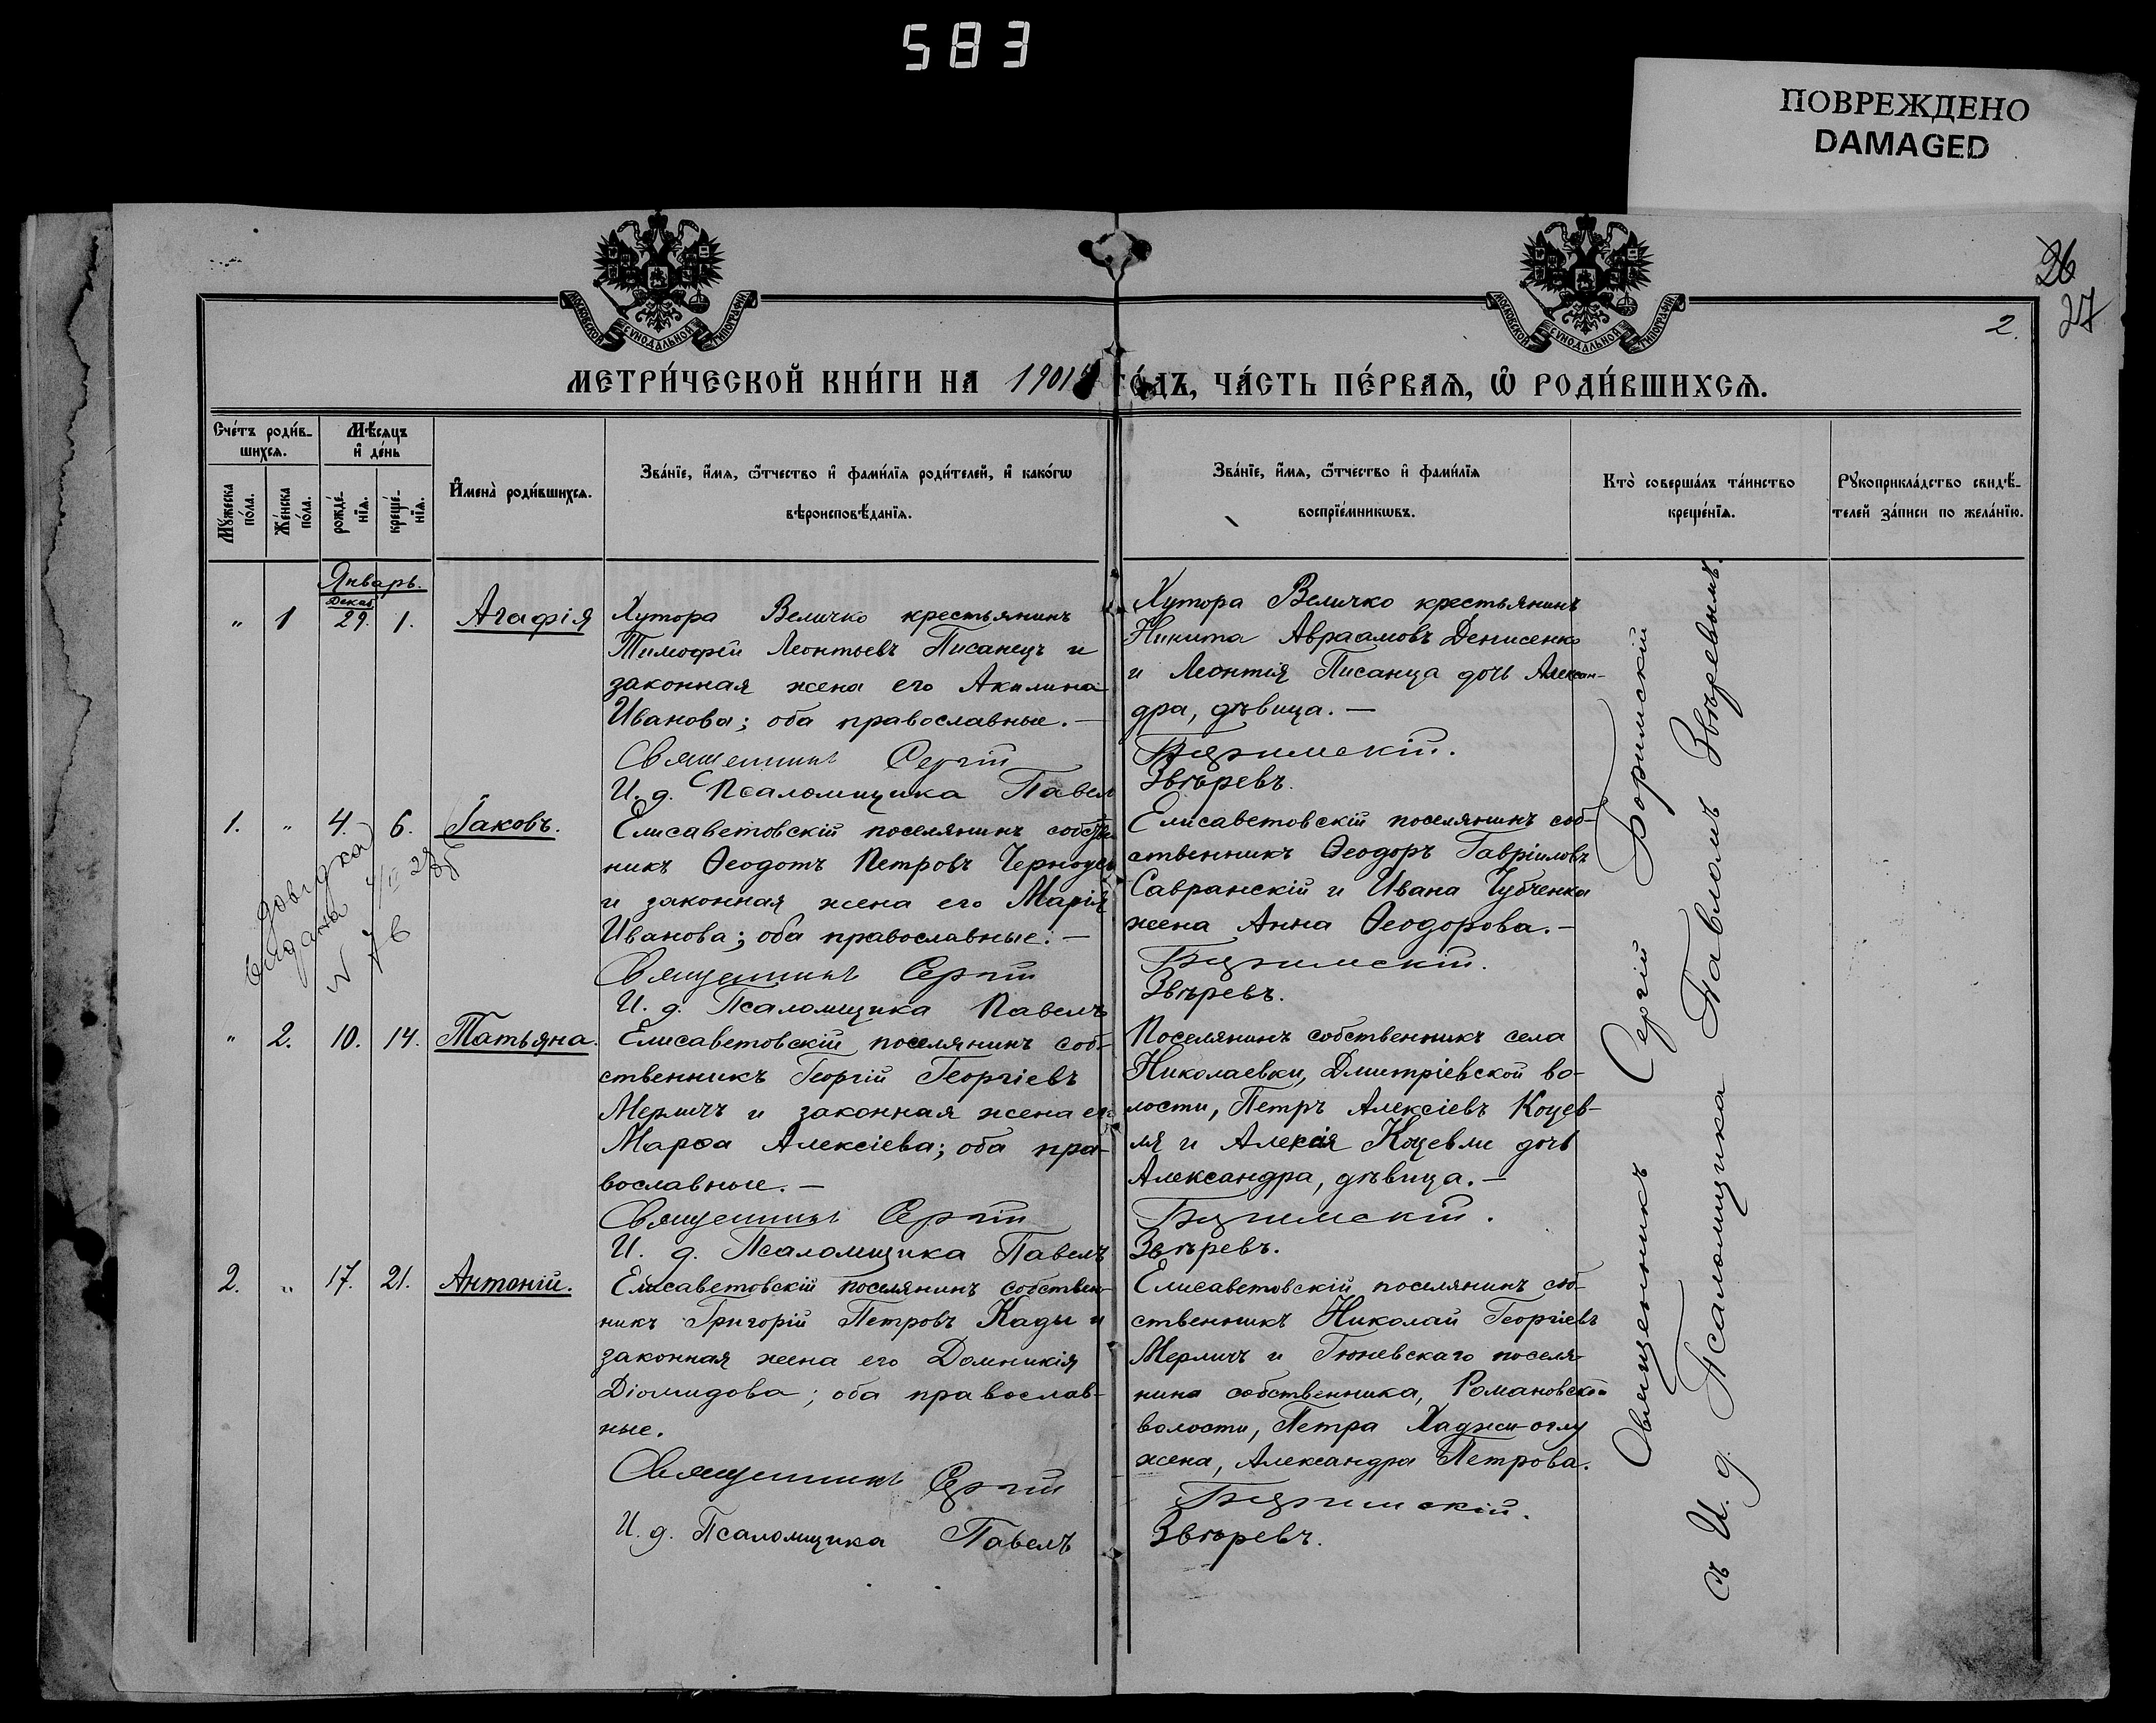 583
ПОВРЕЖДЕНО
DAMAGED
26
27
2.
МОСКОВСКОЙ СУНОДАЛЬНОЙ ТИПОГРАФІИ
МОСКОВСКОЙ СУНОДАЛЬНОЙ ТИПОГРАФІИ
МЕТРИ́ЧЕСКОЙ КНИ́ГИ НА 1901 ГО́ДЪ, ЧА́СТЬ ПЕ́РВАѦ, Ѡ҆ РОДИ́ВШИХСѦ.
Сче́тъ роди́в-
шихсѧ.
Мѣ́сѧцъ
и҆ де́нь
Мꙋ́жеска
по́ла.
Же́нска
по́ла.
рожде́-
нїѧ.
креще́-
нїѧ.
И҆мена̀ роди́вшихсѧ.
Зва́нїе, и҆́мѧ, ѻ҆́тчество и҆ фами́лїѧ роди́телей, и҆ како́гѡ
вѣроисповѣ́данїѧ.
Зва́нїе, и҆́мѧ, ѻ҆́тчество и҆ фами́лїѧ
воспрїе́мникѡвъ.
Кто̀ соверша́лъ та́инство
креще́нїѧ.
Рꙋкоприкла́дство свидѣ́-
телей за́писи по жела́нїю.
Январь.
Декаб.
" 1 29. 1. Агафія
Хутора Величко крестьянинъ
Тимофей Леонтьевъ Писанецъ и
законная жена его Акилина
Иванова; оба православные. —
Священникъ Сергій
И. д. Псаломщика Павелъ
Хутора Величко крестьянинъ
Никита Авраамовъ Денисенко
и Леонтія Писанца дочь Алексан-
дра, дѣвица. —
Боримскій.
Звѣревъ.
1. " 4. 6. Іаковъ.
довідка
видана
Елисаветовскій поселянинъ собствен
никъ Ѳеодотъ Петровъ Черноусъ
и законная жена его Марія
Иванова; оба православные. —
Священникъ Сергій
И. д. Псаломщика Павелъ
Елисаветовскій поселянинъ соб-
ственникъ Ѳеодоръ Гавріиловъ
Савранскій и Ивана Чубченка
жена Анна Ѳеодорова. —
Боримскій.
Звѣревъ.
" 2. 10. 14. Татьяна.
Елисаветовскій поселянинъ соб-
ственникъ Георгій Георгіевъ
Мерличъ и законная жена его
Марѳа Алексіева; оба пра-
вославные. —
Священникъ Сергій
И. д. Псаломщика Павелъ
Поселянинъ собственникъ села
Николаевки, Дмитріевской во-
лости, Петръ Алексіевъ Коцев-
ля и Алексія Коцевли дочь
Александра, дѣвица. —
Боримскій.
Звѣревъ.
2. " 17. 21. Антоній.
Елисаветовскій поселянинъ собствен-
никъ Григорій Петровъ Кады и
законная жена его Домникія
Діомидова; оба православ-
ные.
Священникъ Сергій
И. д. Псаломщика Павелъ
Елисаветовскій поселянинъ соб-
ственникъ Николай Георгіевъ
Мерличъ и Гюневскаго поселя-
нина собственника, Романовской
волости, Петра Хаджи-оглу
жена, Александра Петрова.
Боримскій.
Звѣревъ.
Священникъ Сергій Боримскій
съ И. д. Псаломщика Павломъ Звѣревымъ.